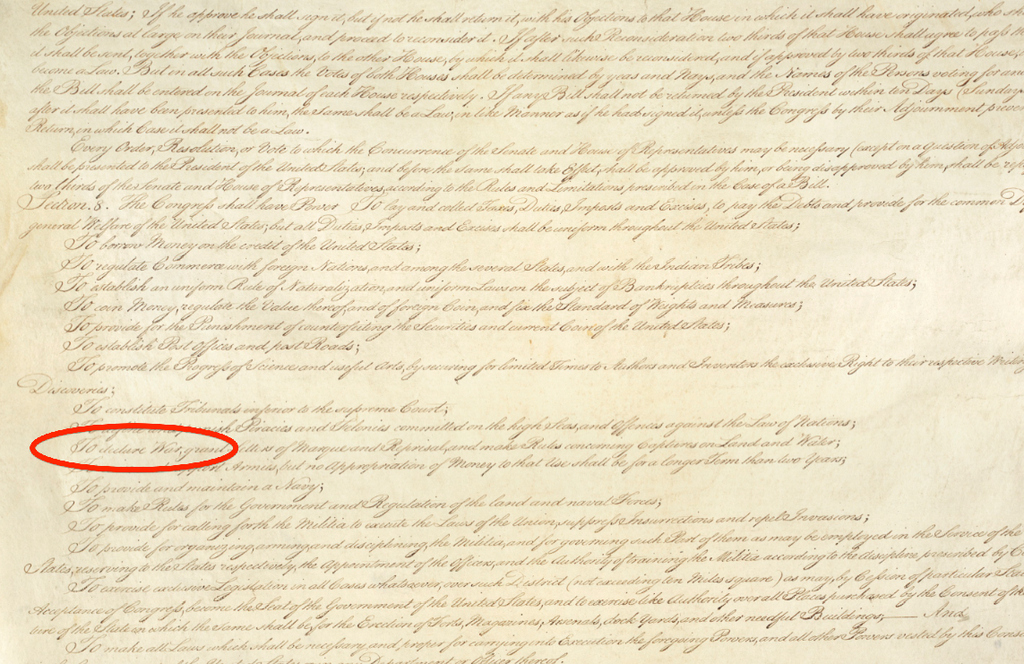 United States; If he approve he shall sign it, but if not he shall return it, with his Objections to that House in which it shall have originated, who
the Objections at large on their Journal, and proceed to reconsider it. If after such Reconsideration two thirds of that House shall agree to pass
it shall be sent, together with the Objections, to the other House, by which it shall likewise be reconsidered, and if approved by two thirds of that House,
become a Law. But in all such Cases the Votes of both Houses shall be determined by yeas and Nays, and the Names of the Persons voting for and
the Bill shall be entered on the Journal of each House respectively. If any Bill shall not be returned by the President within ten Days (Sundays
after it shall have been presented to him, the Same shall be a Law, in like Manner as if he had signed it, unless the Congress by their Adjournment prevent
Return, in which Case it shall not be a Law.
Every Order, Resolution, or Vote to which the Concurrence of the Senate and House of Representatives may be necessary (except on a question of
shall be presented to the President of the United States; and before the Same shall take Effect, shall be approved by him, or being disapproved by him, shall be
two thirds of the Senate and House of Representatives, according to the Rules and Limitations prescribed in the Case of a Bill.
Section. 8. The Congress shall have Power To lay and collect Taxes, Duties, Imposts and Excises, to pay the Debts and provide for the common
general Welfare of the United States; but all Duties, Imposts and Excises shall be uniform throughout the United States;
To borrow Money on the credit of the United States;
To regulate Commerce with foreign Nations, and among the several States, and with the Indian Tribes;
To establish an uniform Rule of Naturalization, and uniform Laws on the subject of Bankruptcies throughout the United States;
To coin Money, regulate the Value thereof, and of foreign Coin, and fix the Standard of Weights and Measures;
To provide for the Punishment of counterfeiting the Securities and current Coin of the United States;
To establish Post Offices and post Roads;
To promote the Progress of Science and useful Arts, by securing for limited Times to Authors and Inventors the exclusive Right to their respective
Discoveries;
To constitute Tribunals inferior to the supreme Court;
To define and punish Piracies and Felonies committed on the high Seas, and Offences against the Law of Nations;
To declare War, grant Letters of Marque and Reprisal, and make Rules concerning Captures on Land and Water;
support Armies, but no Appropriation of Money to that Use shall be for a longer Term than two Years;
To provide and maintain a Navy;
To make Rules for the Government and Regulation of the land and naval Forces;
To provide for calling forth the Militia to execute the Laws of the Union, suppress Insurrections and repel Invasions;
To provide for organizing, arming, and disciplining, the Militia, and for governing such Part of them as may be employed in the Service of the
States, reserving to the States respectively, the Appointment of the Officers, and the Authority of training the Militia according to the discipline prescribed by
To exercise exclusive Legislation in all Cases whatsoever, over such District (not exceeding ten Miles square) as may, by Cession of particular
Acceptance of Congress, become the Seat of the Government of the United States, and to exercise like Authority over all Places purchased by the Consent of
ture of the State in which the Same shall be, for the Erection of Forts, Magazines, Arsenals, dock-Yards, and other needful Buildings;—And
To make all Laws which shall be necessary and proper for carrying into Execution the foregoing Powers, and all other Powers vested by this
States, or in any Department or Officer thereof.